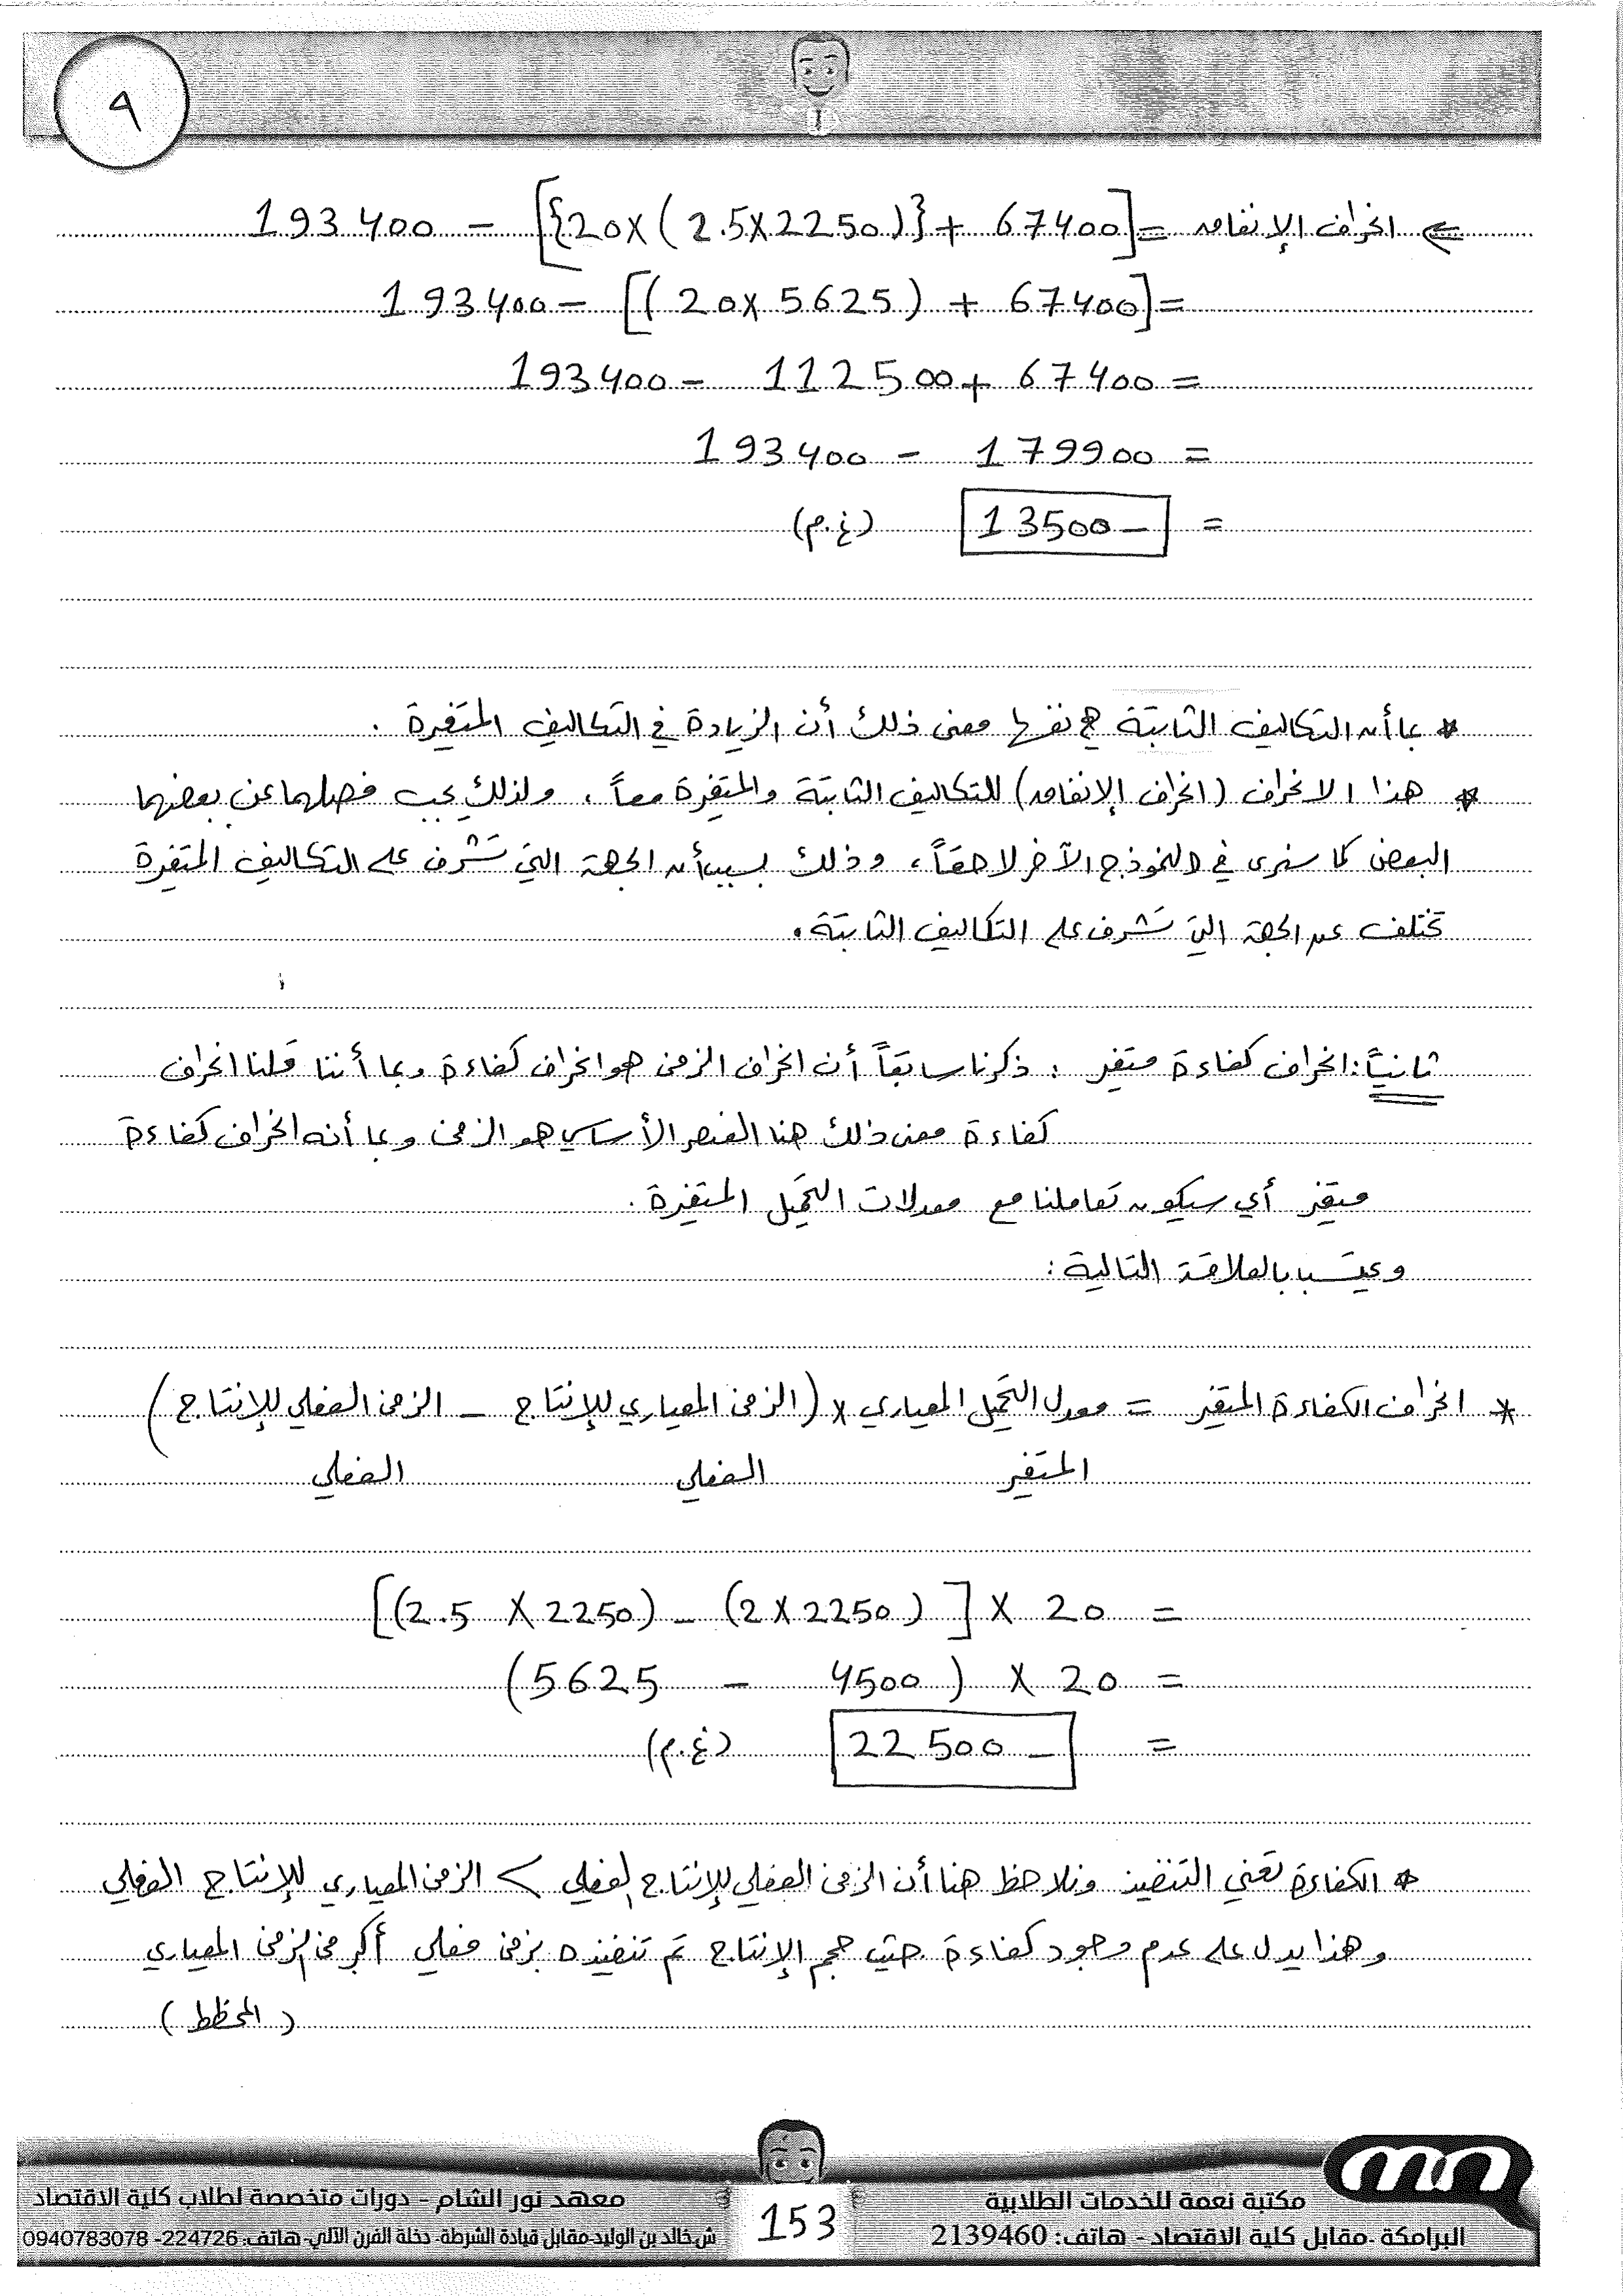 ٩
⇐ انحراف الإنفاق = [67400 + {(2250×2.5)×20}] − 193400
= [67400 + (5625×20)] − 193400
= 67400 + 112500 − 193400
= 179900 − 193400
= 13500− (غ.م)
* بما أن التكاليف الثابتة هي نفسها معنى ذلك أن الزيادة في التكاليف المتغيرة .
* هذا الانحراف (انحراف الإنفاق) للتكاليف الثابتة والمتغيرة معاً ، ولذلك يجب فصلهما عن بعضهما
البعض كما سنرى في النموذج الآخر لاحقاً ، وذلك بسبب أن الجهة التي تشرف على التكاليف المتغيرة
تختلف عن الجهة التي تشرف على التكاليف الثابتة .
ثانياً : انحراف كفاءة متغير : ذكرنا سابقاً أن انحراف الزمن هو انحراف كفاءة وبما أننا قلنا انحراف
كفاءة معنى ذلك هنا العنصر الأساسي هو الزمن وبما أنه انحراف كفاءة
متغير أي سيكون تعاملنا مع معدلات التحميل المتغيرة .
ويحسب بالعلاقة التالية :
* انحراف الكفاءة المتغير = معدل التحميل المعياري × (الزمن المعياري للإنتاج − الزمن الفعلي للإنتاج)
المتغير الفعلي الفعلي
= 20 × [(2250×2) − (2250 × 2.5)]
= 20 × (4500 − 5625)
= 22500 − (غ.م)
* الكفاءة تعني التنفيذ ونلاحظ هنا أن الزمن الفعلي للإنتاج الفعلي > الزمن المعياري للإنتاج الفعلي
وهذا يدل على عدم وجود كفاءة حيث حجم الإنتاج تم تنفيذه بزمن فعلي أكبر من الزمن المعياري
(المخطط)
مكتبة نعمة للخدمات الطلابية
البرامكة -مقابل كلية الاقتصاد - هاتف: 2139460
153
معهد نور الشام - دورات متخصصة لطلاب كلية الاقتصاد
ش.خالد بن الوليد-مقابل قيادة الشرطة- دخلة الفرن الآلي- هاتف: 224726- 0940783078